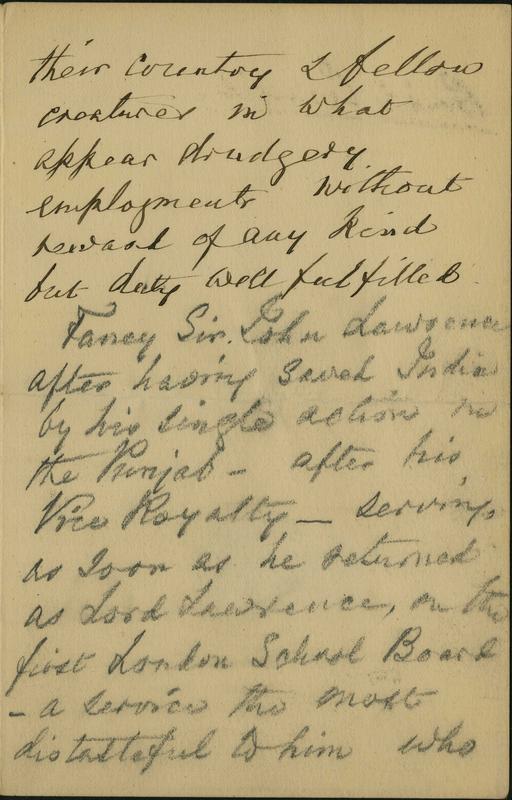 their country & fellow
creatures in what
appear drudgery
employments without
reward of any kind
but duty well fulfilled.
Fancy Sir John Lawrence
after having saved India
by his single action in
the Punjab - after his
Vice Royalty - serving,
as soon as he returned
as Lord Lawrence, on the
first London School Board
- a service the most
distasteful to him who